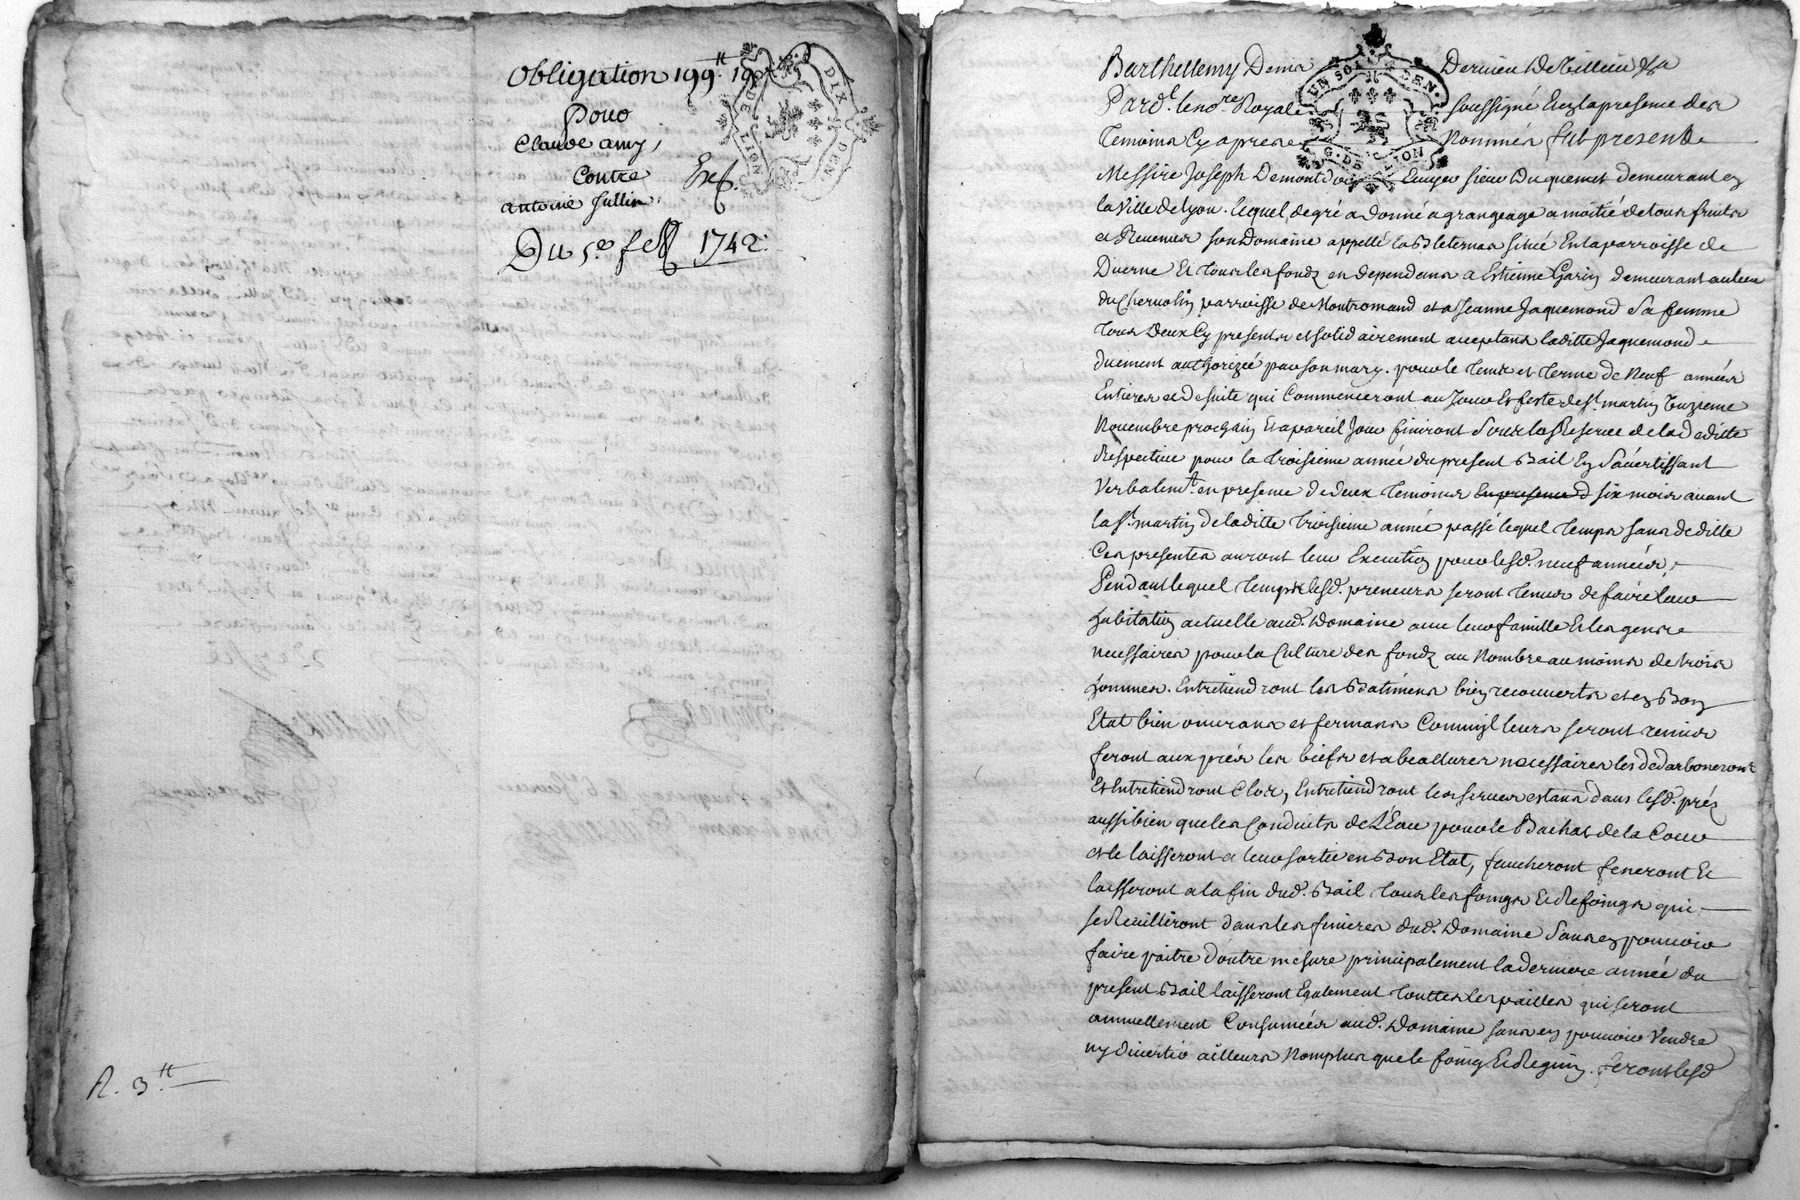 Obligation 199ᵗᵗ 19ˢ
Pour
Claude amy,
Contre
Exp.
antoine Jullin.
Du 5ᵉ feb 1742.
R. 3ᵗᵗ
DIX DEN
G. DE LYON
UN SOL DEN.
G. DE LYON
Barthellemy
Pard. le noʳᵉ Royal soussigné En la presence des
Temoins Cy apres Nommés fut present
Messire Joseph Demontdor Ecuyer sieur Duquemet demeurant en
la Ville de Lyon. lequel de gré a donné a grangeage a moitié de tous fruits
et Revenus son Domaine appellé situé En la parroisse de
Duerne Et tous les fondz en dependans a Estienne Garin demeurant au lieu
du parroisse de Montromand et a Jeanne Jaquemond Sa femme
tous Deux Cy presents et solidairement acceptans laditte Jaquemond
duement authorizée par son mary. pour le temps et terme de Neuf années
Entieres et de suite qui Commenceront au Jour Et feste de Sᵗ martin Onzieme
Novembre prochain Et a pareil Jour finiront Sous la Reserve de la Deditte
Respective pour la troisieme année du present Bail En S'avertissant
Verbalemᵗ en presence de deux temoins En presence d six mois avant
la Sᵗ martin de laditte troisieme année passé lequel temps sans deditte
Ces presentes auront leur Execution pour lesd. neuf années,
Pendant lequel temps lesd. preneurs seront tenus de faire leur
habitation actuelle aud. Domaine avec leur famille Et les gens
necessaires pour la Culture des fondz au Nombre au moins de trois
hommes. Entretiendront les Batimens bien recouverts et en Bon
Etat bien ouvrans et fermans Comme ils leurs seront remis
feront aux prés les biefs et abeallures necessaires les dedarboneront
Et Entretiendront Clos, Entretiendront les serves estans dans lesd. préz
aussi bien que les Conduits de L'Eau pour le Bachat de la Cour
et le laisseront a leur sortie en Bon Etat, faucheront feneront Et
laisseront a la fin dud. Bail tous les foings Et Refoings qui
se Reuilliront dans les finieres dud. Domaine Sans en pouvoir
faire paitre d'outre mesure principalement la derniere année du
present Bail laisseront Egalement touttes les pailles qui seront
annuellement Consumées aud. Domaine sans en pouvoir Vendre
ny divertir ailleurs Nomplus que le foing Et Regain. feront lesd